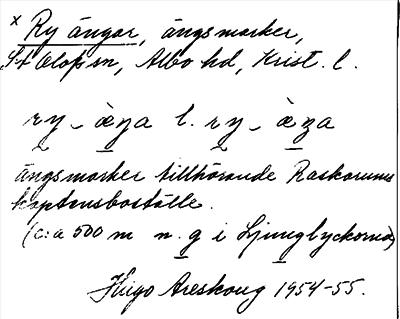 x Ry ängar, ängsmarker,
St Olof sn, Albo hd, Krist. l.
ry - àŋa l. ry - àŋa
ängsmarker tillhörande Raskarums
kaptensboställe.
(c:a 500 m n. g i Ljunglyckorna)
Hugo Areskoug 1954-55.